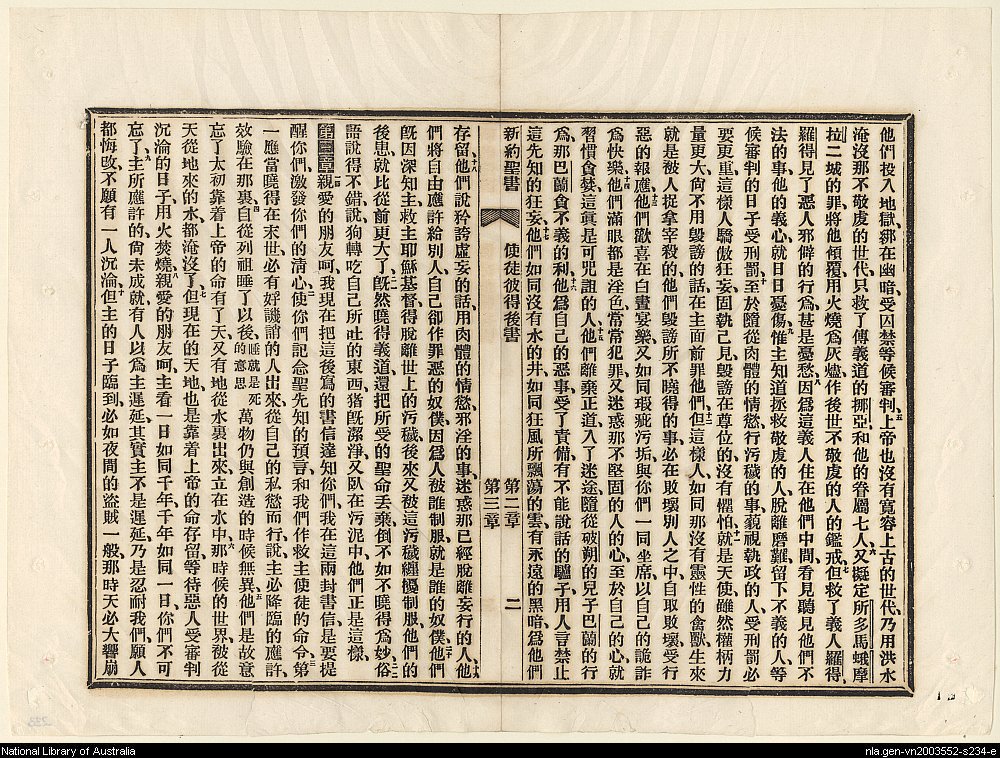 他們投入地獄、綁在幽暗受囚禁等候審判、上帝也沒有寬容上古的世代、乃用洪水
淹沒那不敬虔的世代、只救了傳義道的挪亞、和他的眷屬七人、又擬定所多馬蛾摩
拉二城的罪、將他傾覆、用火燒爲灰燼、作後世不敬虔的人的鑑戒、但救了義人羅得、
羅得見了惡人邪僻的行爲、甚是憂愁、因爲這義人住在他們中間、看見聽見他們不
法的事、他的義心、就日日憂傷、惟主知道拯救敬虔的人、脫離磨難、留下不義的人、等
候審判的日子受刑罰、至於隨從肉體的情慾、行污穢的事、藐視執政的人、受刑罰必
要更重、這樣人驕傲狂妄、固執己見、毀謗在尊位的、沒有懼怕、就是天使、雖然權柄力
量更大、尙不用毀謗的話、在主面前罪他們、但這樣人、如同那沒有靈性的禽獸、生來
就是被人捉拿宰殺的、他們毀謗所不曉得的事、必在敗壞別人之中、自取敗壞、受行
惡的報應、他們歡喜在白晝宴樂、又如同瑕疵污垢、與你們一同坐席、以自己的詭詐
爲快樂、他們滿眼都是淫色、常常犯罪、又迷惑那不堅固的人的心、至於自己的心、就
習慣貪婪、這眞是可咒詛的人、他們離棄正道、入了迷途、隨從破朔的兒子巴蘭的行
爲、那巴蘭貪不義的利、他爲自己的惡事、受了責備、有不能說話的驢子、用人言禁止
這先知的狂妄、他們如同沒有水的井、如同狂風所飄蕩的雲、有永遠的黑暗、爲他們
新約聖書 使徒彼得後書 第二章 第三章 二
存留、他們說矜誇虛妄的話、用肉體的情慾、邪淫的事、迷惑那已經脫離妄行的人、他
們將自由應許給別人、自己卻作罪惡的奴僕、因爲人被誰制服、就是誰的奴僕、他們
旣因深知主救主耶穌基督、得脫離世上的污穢、後來又被這污穢纏擾制服、他們的
後患、就比從前更大了、旣然曉得義道、還把所受的聖命丟棄、倒不如不曉得爲妙、俗
語說得不錯、說狗轉吃自己所吐的東西、猪旣潔淨、又臥在污泥中、他們正是這樣、
第三章 親愛的朋友呵、我現在把這後寫的書信、達知你們、我在這兩封書信、是要提
醒你們、激發你們的淸心、使你們記念聖先知的預言、和我們作救主使徒的命令、第
一應當曉得在末世、必有好譏誚的人出來、從自己的私慾而行、說、主必降臨的應許、
效驗在那裏、自從列祖睡了以後、睡就是死的意思 萬物仍與創造的時候無異、他們是故意
忘了太初靠着上帝的命、有了天、又有地、從水裏出來、立在水中、那時候的世界、被從
天從地來的水、都淹沒了、但現在的天地、也是靠着上帝的命存留、等待惡人受審判
沉淪的日子、用火焚燒、親愛的朋友呵、主看一日如同千年、千年如同一日、你們不可
忘了、主所應許的、尙未成就、有人以爲主遲延、其實主不是遲延、乃是忍耐我們、願人
都悔改、不願有一人沉淪、但主的日子臨到、必如夜間的盜賊一般、那時天必大響崩
National Library of Australia
nla.gen-vn2003552-s234-e